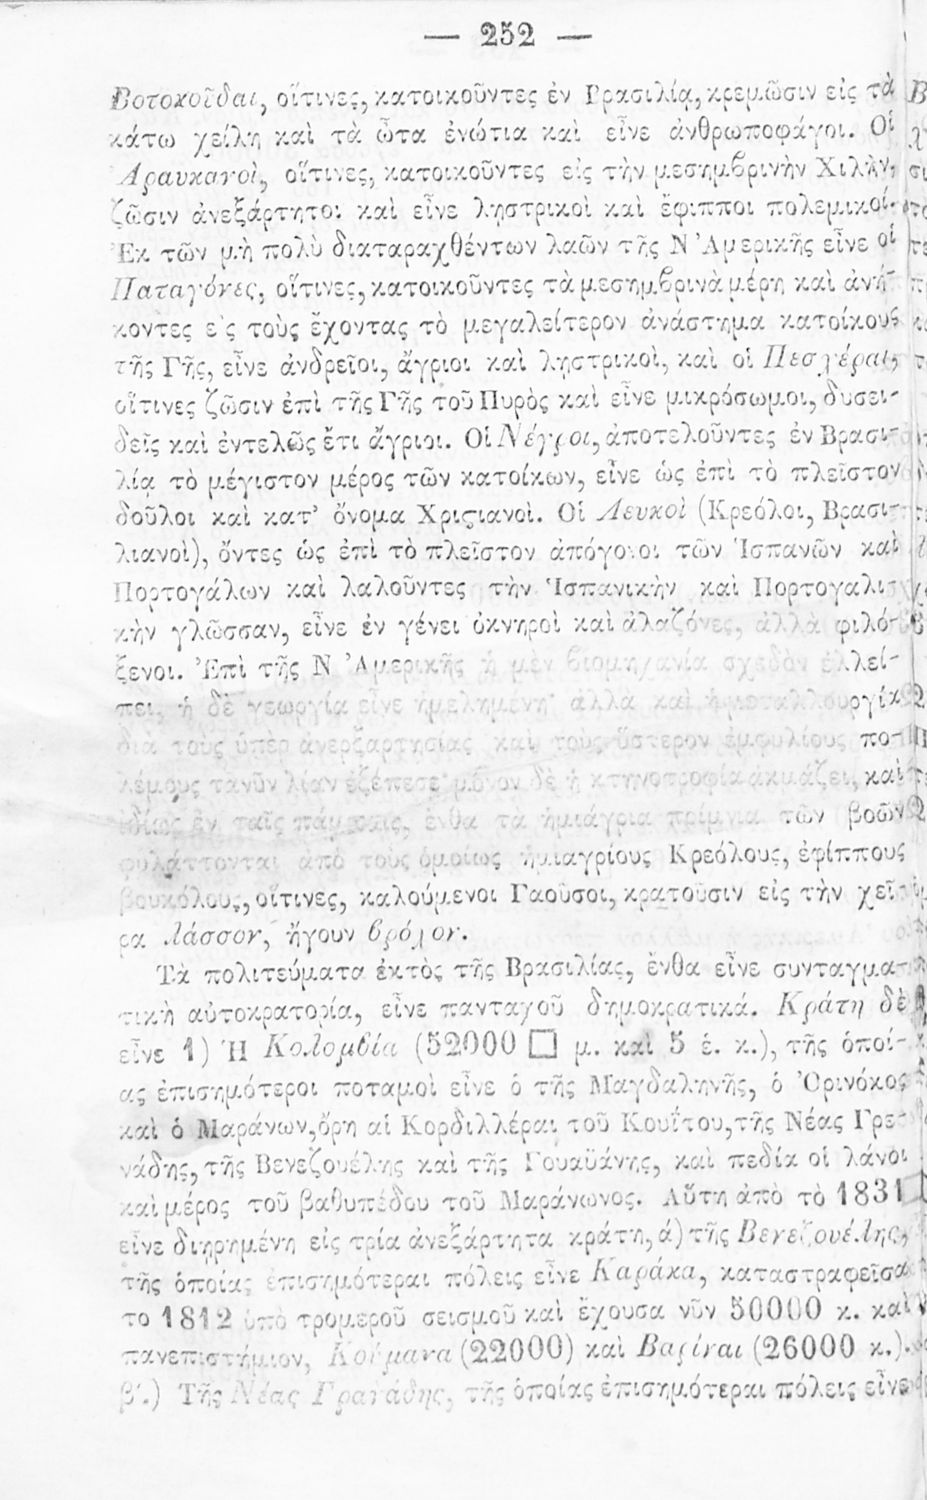 — 252 —
Βοτοκοῦδαι, οἵτινες, κατοικοῦντες ἐν Βρασιλίᾳ, κρεμῶσιν εἰς τὰ
κάτω χείλη καὶ τὰ ὦτα ἐνώτια καὶ εἶνε ἀνθρωποφάγοι. Οἱ
Ἀραυκανοὶ, οἵτινες, κατοικοῦντες εἰς τὴν μεσημβρινὴν Χιλλὴν,
ζῶσιν ἀνεξάρτητοι καὶ εἶνε λῃστρικοὶ καὶ ἔφιπποι πολεμικοί.
Ἐκ τῶν μὴ πολὺ διαταραχθέντων λαῶν τῆς Ν Ἀμερικῆς εἶνε οἱ
Παταγόνες, οἵτινες, κατοικοῦντες τὰ μεσημβρινὰ μέρη καὶ ἀνή-
κοντες εἰς τοὺς ἔχοντας τὸ μεγαλείτερον ἀνάστημα κατοίκους
τῆς Γῆς, εἶνε ἀνδρεῖοι, ἄγριοι καὶ λῃστρικοὶ, καὶ οἱ Πεσχέραι,
οἵτινες ζῶσιν ἐπὶ τῆς Γῆς τοῦ Πυρὸς καὶ εἶνε μικρόσωμοι, δυσει-
δεῖς καὶ ἐντελῶς ἔτι ἄγριοι. Οἱ Νέγροι, ἀποτελοῦντες ἐν Βρασι-
λίᾳ τὸ μέγιστον μέρος τῶν κατοίκων, εἶνε ὡς ἐπὶ τὸ πλεῖστον
δοῦλοι καὶ κατ’ ὄνομα Χριςιανοὶ. Οἱ Λευκοὶ (Κρεόλοι, Βρασι-
λιανοὶ), ὄντες ὡς ἐπὶ τὸ πλεῖστον ἀπόγονοι τῶν Ἱσπανῶν καὶ
Πορτογάλων καὶ λαλοῦντες τὴν Ἱσπανικὴν καὶ Πορτογαλι-
κὴν γλῶσσαν, εἶνε ἐν γένει ὀκνηροὶ καὶ ἀλαζόνες, ἀλλὰ φιλό-
ξενοι. Ἐπὶ τῆς Ν Ἀμερικῆς ἡ μὲν βιομηχανία σχεδὸν ἐλλεί-
πει, ἡ δὲ γεωργία εἶνε ἠμελημένη· ἀλλὰ καὶ ἡ μεταλλουργία
διὰ τοὺς ὑπὲρ ἀνεξαρτησίας καὶ τοὺς ὕστερον ἐμφυλίους πο-
λέμους τανῦν λίαν ἐξέπεσε· μόνον δὲ ἡ κτηνοτροφία ἀκμάζει, καὶ
ἰδίως ἐν ταῖς πάμπαις, ἔνθα τὰ ἡμιάγρια ποίμνια τῶν βοῶν
φυλάττονται ἀπὸ τοὺς ὁμοίως ἡμιαγρίους Κρεόλους, ἐφίππους
βουκόλους, οἵτινες, καλούμενοι Γαοῦσοι, κρατοῦσιν εἰς τὴν χεῖ-
ρα λάσσον, ἤγουν βρόχον.
Τὰ πολιτεύματα ἐκτὸς τῆς Βρασιλίας, ἔνθα εἶνε συνταγμα-
τικὴ αὐτοκρατορία, εἶνε πανταχοῦ δημοκρατικά. Κράτη δὲ
εἶνε 1) Ἡ Κολομβία (52000 □ μ. καὶ 5 ἑ. κ.), τῆς ὁποί-
ας ἐπισημότεροι ποταμοὶ εἶνε ὁ τῆς Μαγδαληνῆς, ὁ Ὀρινόκος
καὶ ὁ Μαράνων, ὄρη αἱ Κορδιλλέραι τοῦ Κουΐτου, τῆς Νέας Γρε-
νάδης, τῆς Βενεζουέλης καὶ τῆς Γουαϋάνης, καὶ πεδία οἱ λάνοι
καὶ μέρος τοῦ βαθυπέδου τοῦ Μαράνωνος. Αὕτη ἀπὸ τὸ 1831
εἶνε διῃρημένη εἰς τρία ἀνεξάρτητα κράτη, ά) τῆς Βενεζουέλης,
τῆς ὁποίας ἐπισημότεραι πόλεις εἶνε Καράκα, καταστραφεῖσα
το 1812 ὑπὸ τρομεροῦ σεισμοῦ καὶ ἔχουσα νῦν 50000 κ. καὶ
πανεπιστήμιον, Κούμανα (22000) καὶ Βαρίναι (26000 κ.).
β΄.) Τῆς Νέας Γρανάδης, τῆς ὁποίας ἐπισημότεραι πόλεις εἶνε